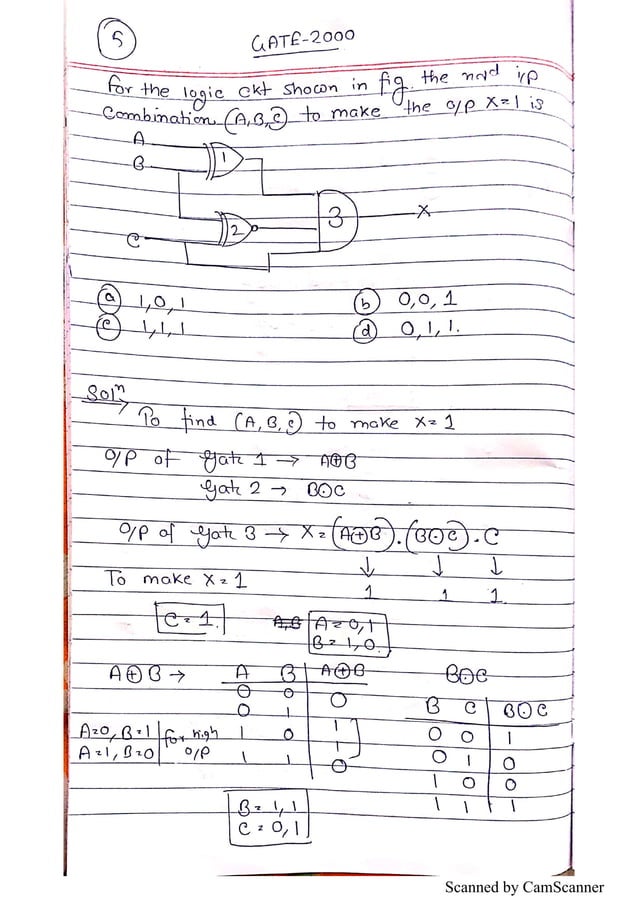 5
GATE-2000
For the logic ckt shown in fig. the nqd i/p
Combination (A,B,C) to make the o/p X=1 is
A
B
1
3
X
2
C
a 1,0,1
b 0,0,1
c 1,1,1
d 0,1,1.
Solⁿ
To find (A,B,C) to make X=1
O/P of Gate 1 → A⊕B
Gate 2 → B⊙C
O/P of Gate 3 → X=(A⊕B).(B⊙C).C
↓ ↓ ↓
To make X=1 1 1 1
C=1. A=0,1
B=1,0.
A⊕B → A B A⊕B
B⊙C
0 0 0
B C B⊙C
0 1 1
0 0 1
A=0, B=1 for high 1 0 1
0 1 0
A=1, B=0 O/P 1 1 0
1 0 0
1 1 1
B=1,1
C=0,1
Scanned by CamScanner